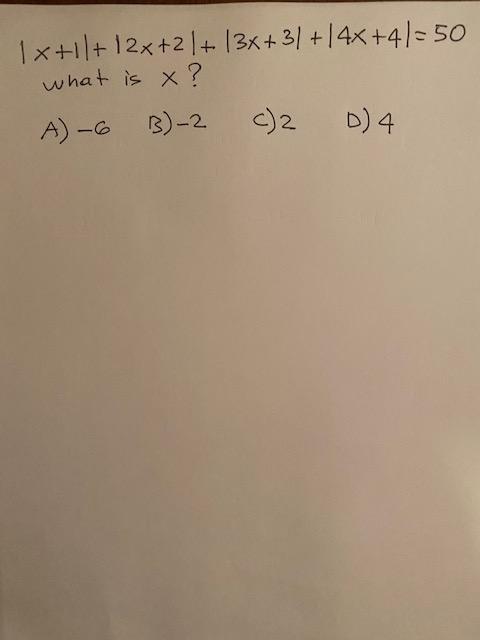 |x+1|+|2x+2|+|3x+3|+|4x+4|=50
what is x?
A)-6 B)-2 C)2 D)4